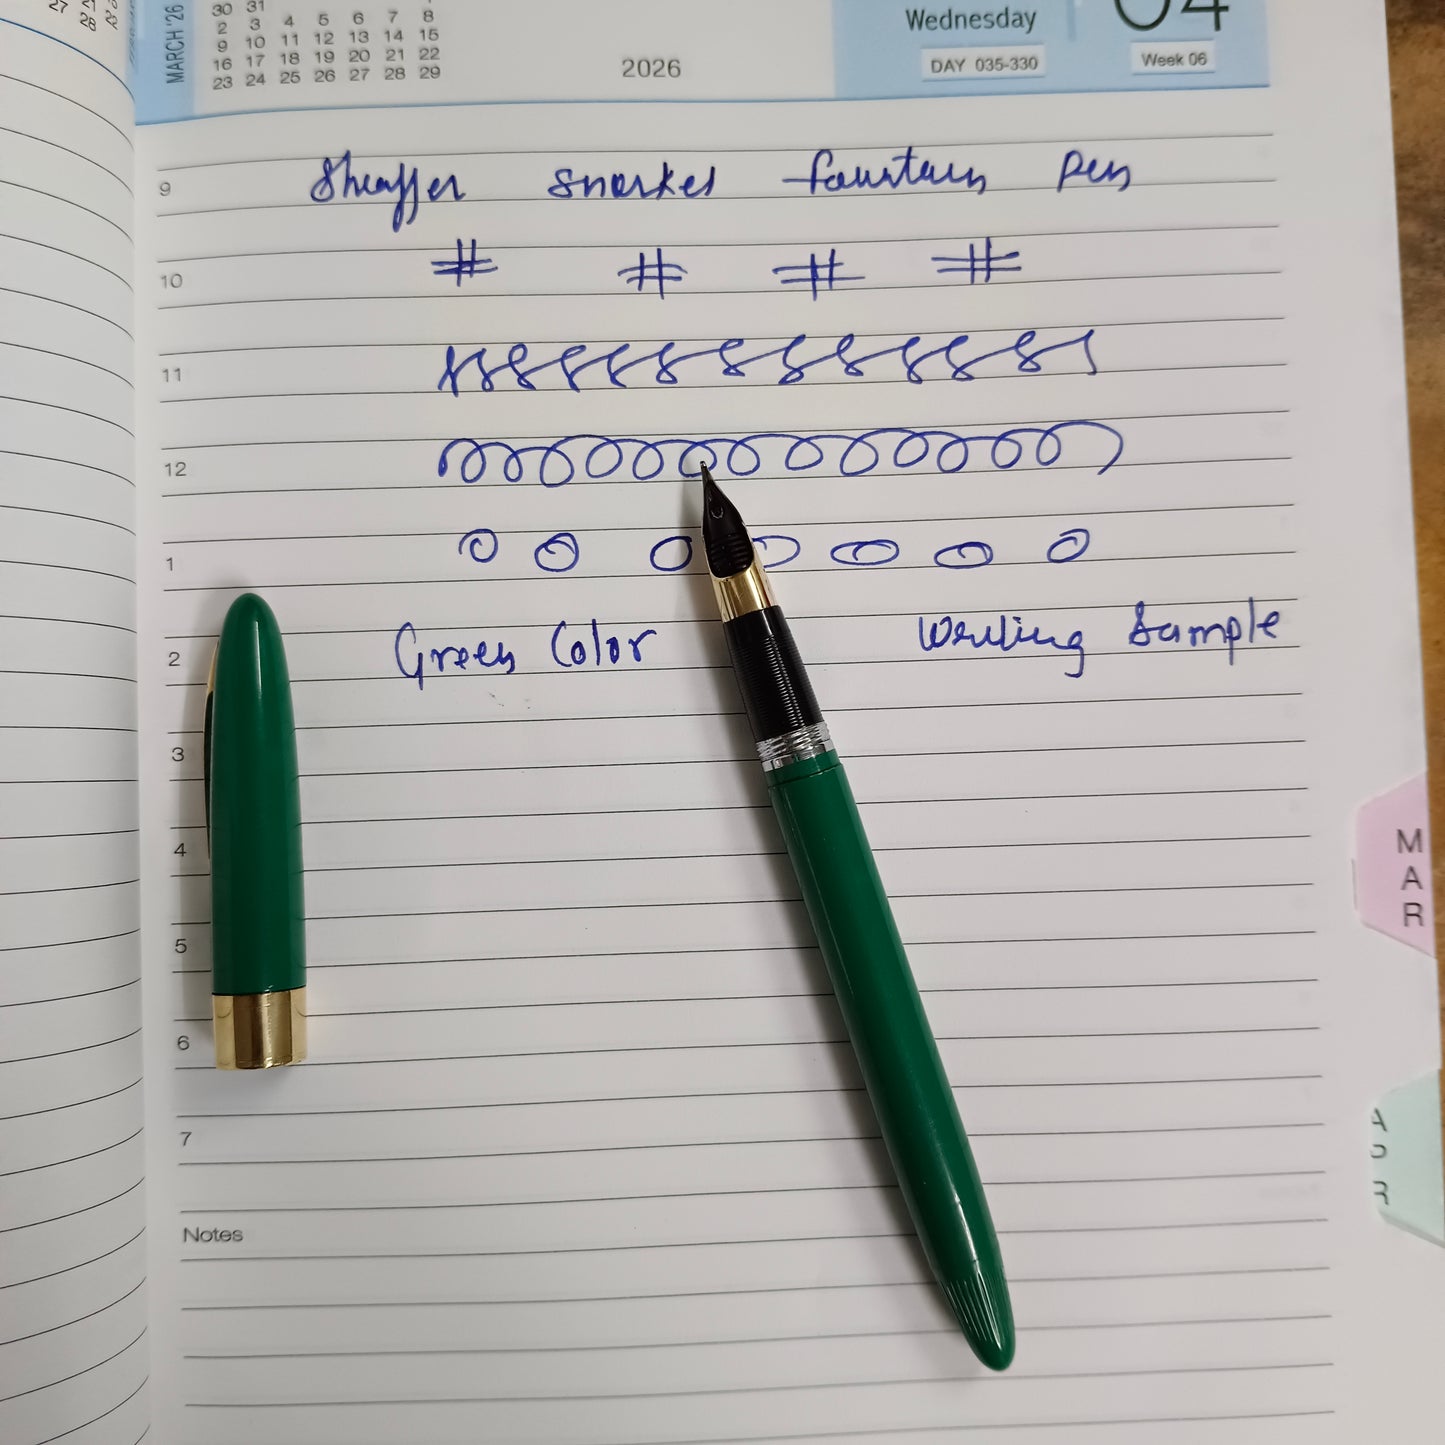 MARCH '26
30 31
2 3 4 5 6 7 8
9 10 11 12 13 14 15
16 17 18 19 20 21 22
23 24 25 26 27 28 29
2026
Wednesday
04
DAY 035-330
Week 06
9 Sheaffer snorkel fountain Pen
10 # # # #
11
12
1
2 Green Color Writing Sample
3
4
5
6
7
Notes
MAR
APR
27
28